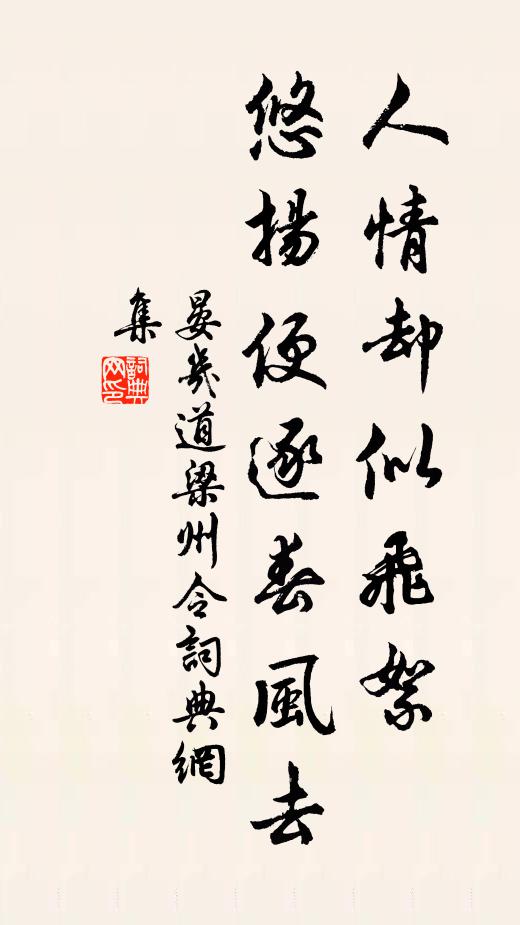 人情却似飛絮
悠揚便逐春風去
晏幾道梁州令詞典網
集
詞典网印